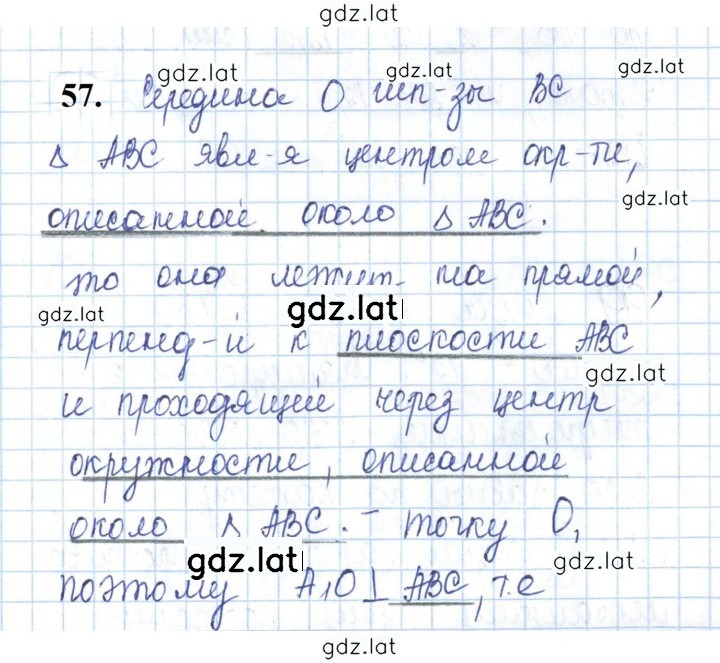 gdz.lat
gdz.lat gdz.lat gdz.lat
57. Середина О гип-зы BC
Δ ABC явл-я центром окр-ти,
gdz.lat
описанной около Δ ABC.
то она лежит на прямой,
gdz.lat gdz.lat
перпенд-й к плоскости ABC
gdz.lat
и проходящей через центр
окружности, описанной
gdz.lat
около Δ ABC. – точку O,
gdz.lat gdz.lat
поэтому A₁O ⊥ ABC, т.е
gdz.lat